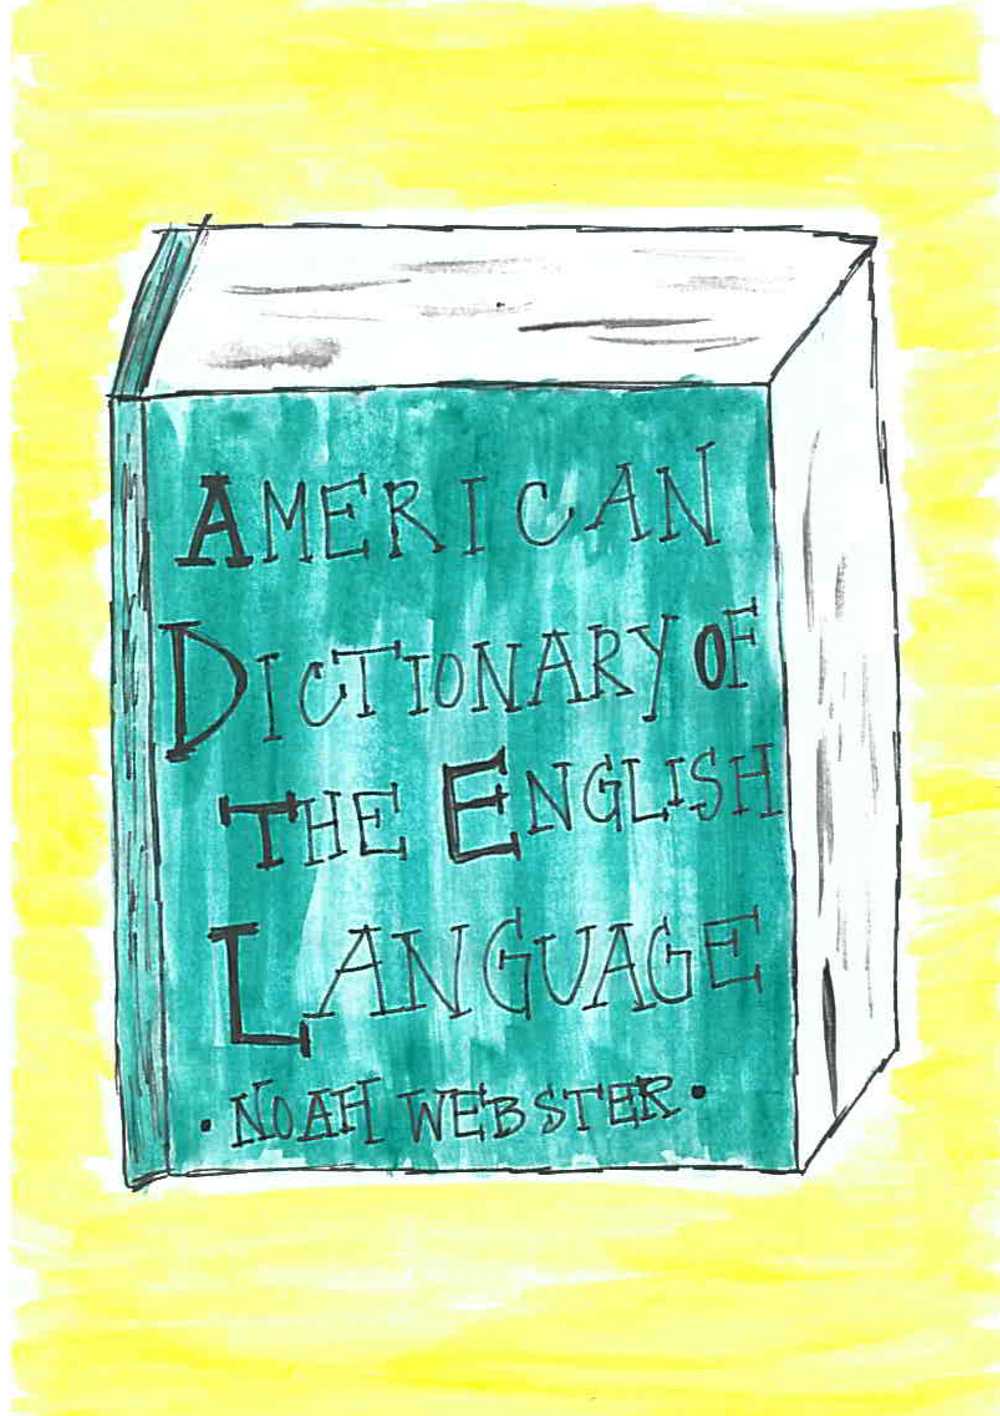 AMERICAN
DICTIONARY OF
THE ENGLISH
LANGUAGE
• NOAH WEBSTER •